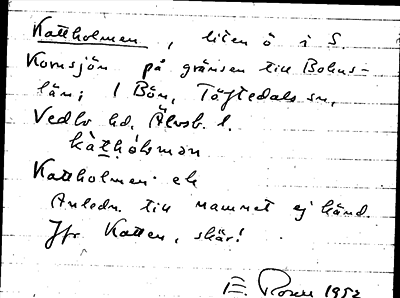 Kattholmen, liten ö i S.
Kornsjön på gränsen till Bohus-
län; I Bön, Töftedals sn,
Vedbo hd, Älvsb. l.
kàthólmən
Kattholmen ek
Anledn. till namnet ej känd.
Jfr Katten, skär!
E. 1952